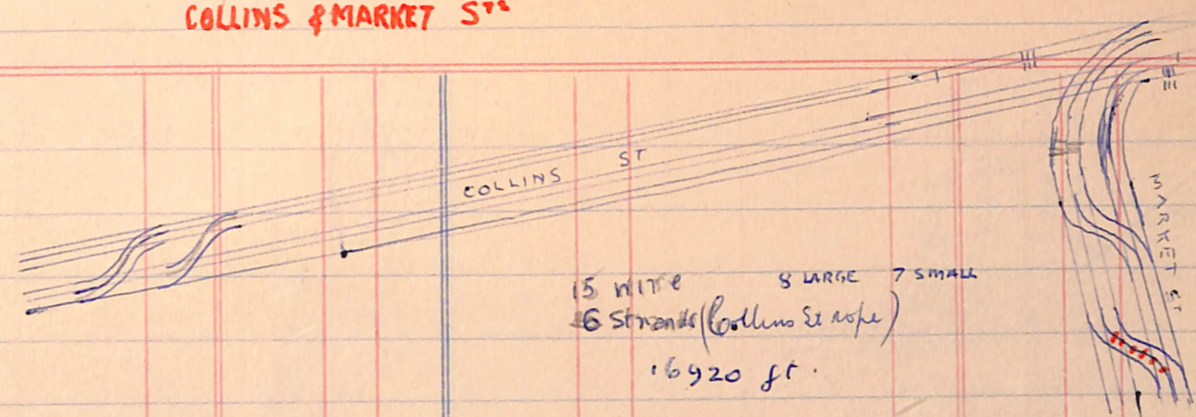 COLLINS & MARKET STS
COLLINS ST
MARKET ST
15 wire 8 LARGE 7 SMALL
6 Strands (Collins St rope)
16920 ft.